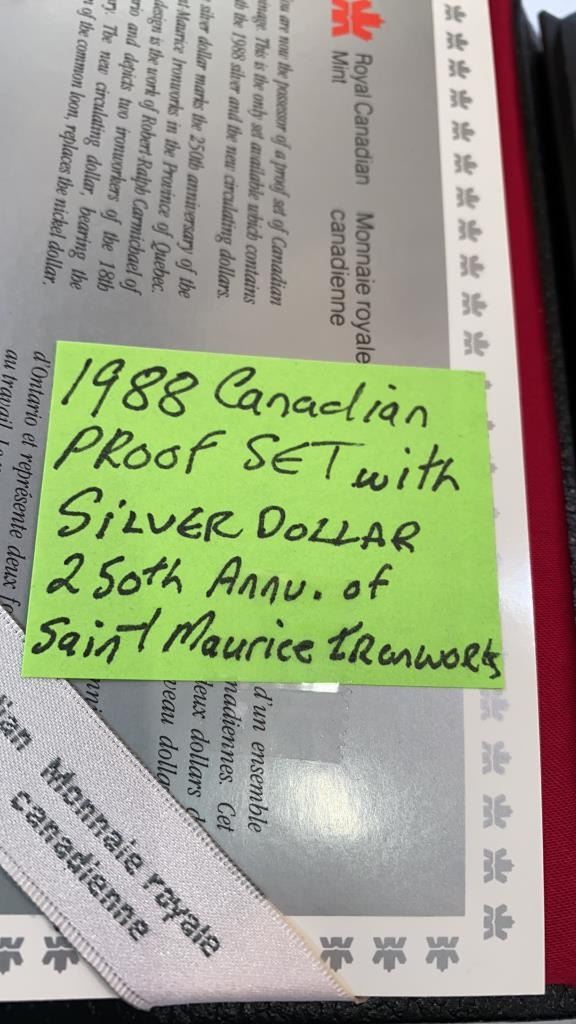 Royal Canadian
Mint
Monnaie royale
canadienne
you are now the possessor of a proof set of Canadian
This is the only set available which contains
the 1988 silver and the new circulating dollars.
silver dollar marks the 250th anniversary of the
Maurice Ironworks in the Province of Quebec.
design is the work of Robert-Ralph Carmichael of
and depicts two ironworkers of the 18th
The new circulating dollar, bearing the
of the common loon, replaces the nickel dollar.
1988 Canadian
PROOF SET with
SILVER DOLLAR
250th Annv. of
Saint Maurice IRonworks
d'un ensemble
nadiennes. Cet
deux dollars d
veau dolla
d'Ontario et représente deux fo
au travail
Monnaie royale
canadienne